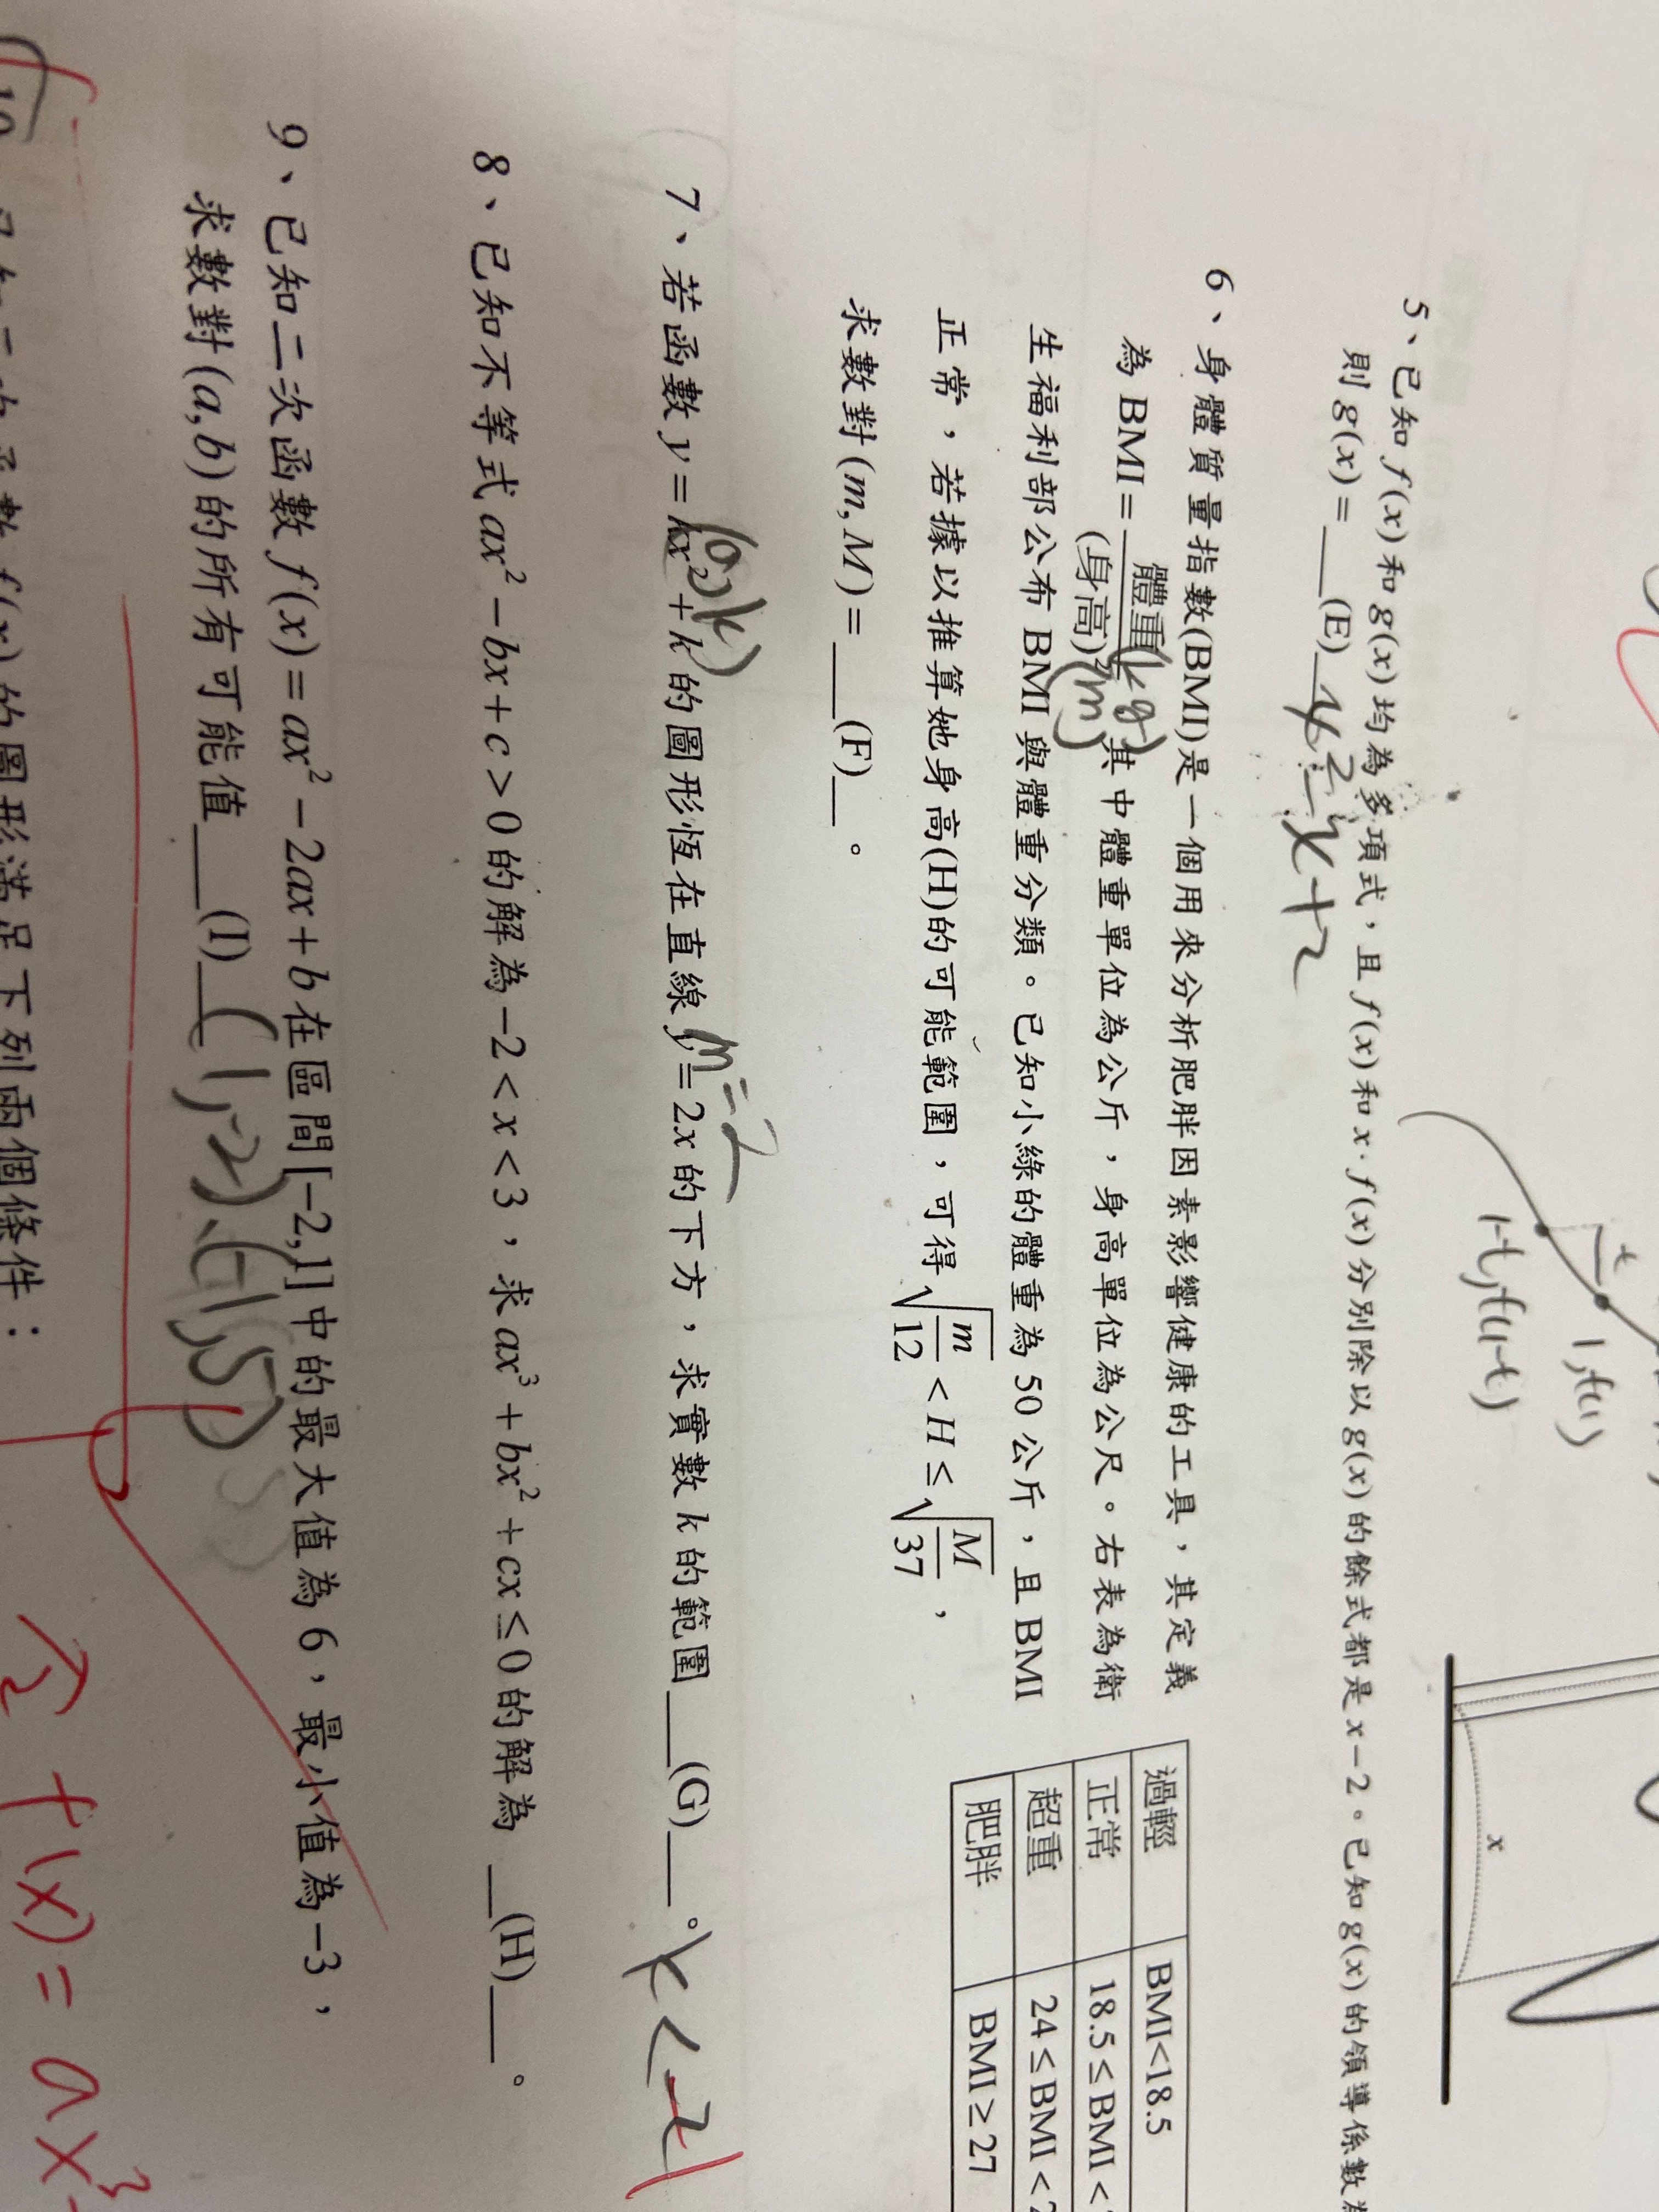 1-t, f(1-t)
t
1, f(1)
x
5、已知 f(x) 和 g(x) 均為多項式，且 f(x) 和 x·f(x) 分別除以 g(x) 的餘式都是 x-2。已知 g(x) 的領導係數
則 g(x) = ___(E)___ x²-x+2
6、身體質量指數(BMI)是一個用來分析肥胖因素影響健康的工具，其定義
為 BMI = 體重(kg)/(身高)²(m) 其中體重單位為公斤，身高單位為公尺。右表為衛
生福利部公布 BMI 與體重分類。已知小綠的體重為 50 公斤，且 BMI
正常，若據以推算她身高(H)的可能範圍，可得 √(m/12) < H ≤ √(M/37)，
求數對 (m, M) = ___(F)___。
過輕 BMI<18.5
正常 18.5≤BMI<
超重 24≤BMI<2
肥胖 BMI≥27
(0, k)
m=2
7、若函數 y = kx² + k 的圖形恆在直線 y = 2x 的下方，求實數 k 的範圍___(G)___。k<-2
8、已知不等式 ax² - bx + c > 0 的解為 -2 < x < 3，求 ax³ + bx² + cx ≤ 0 的解為 ___(H)___。
9、已知二次函數 f(x) = ax² - 2ax + b 在區間[-2,1]中的最大值為 6，最小值為 -3，
求數對 (a, b) 的所有可能值___(I)___ (1,-2)、(-1,5)
10
的圖形滿足下列兩個條件：
f(x) = ax³